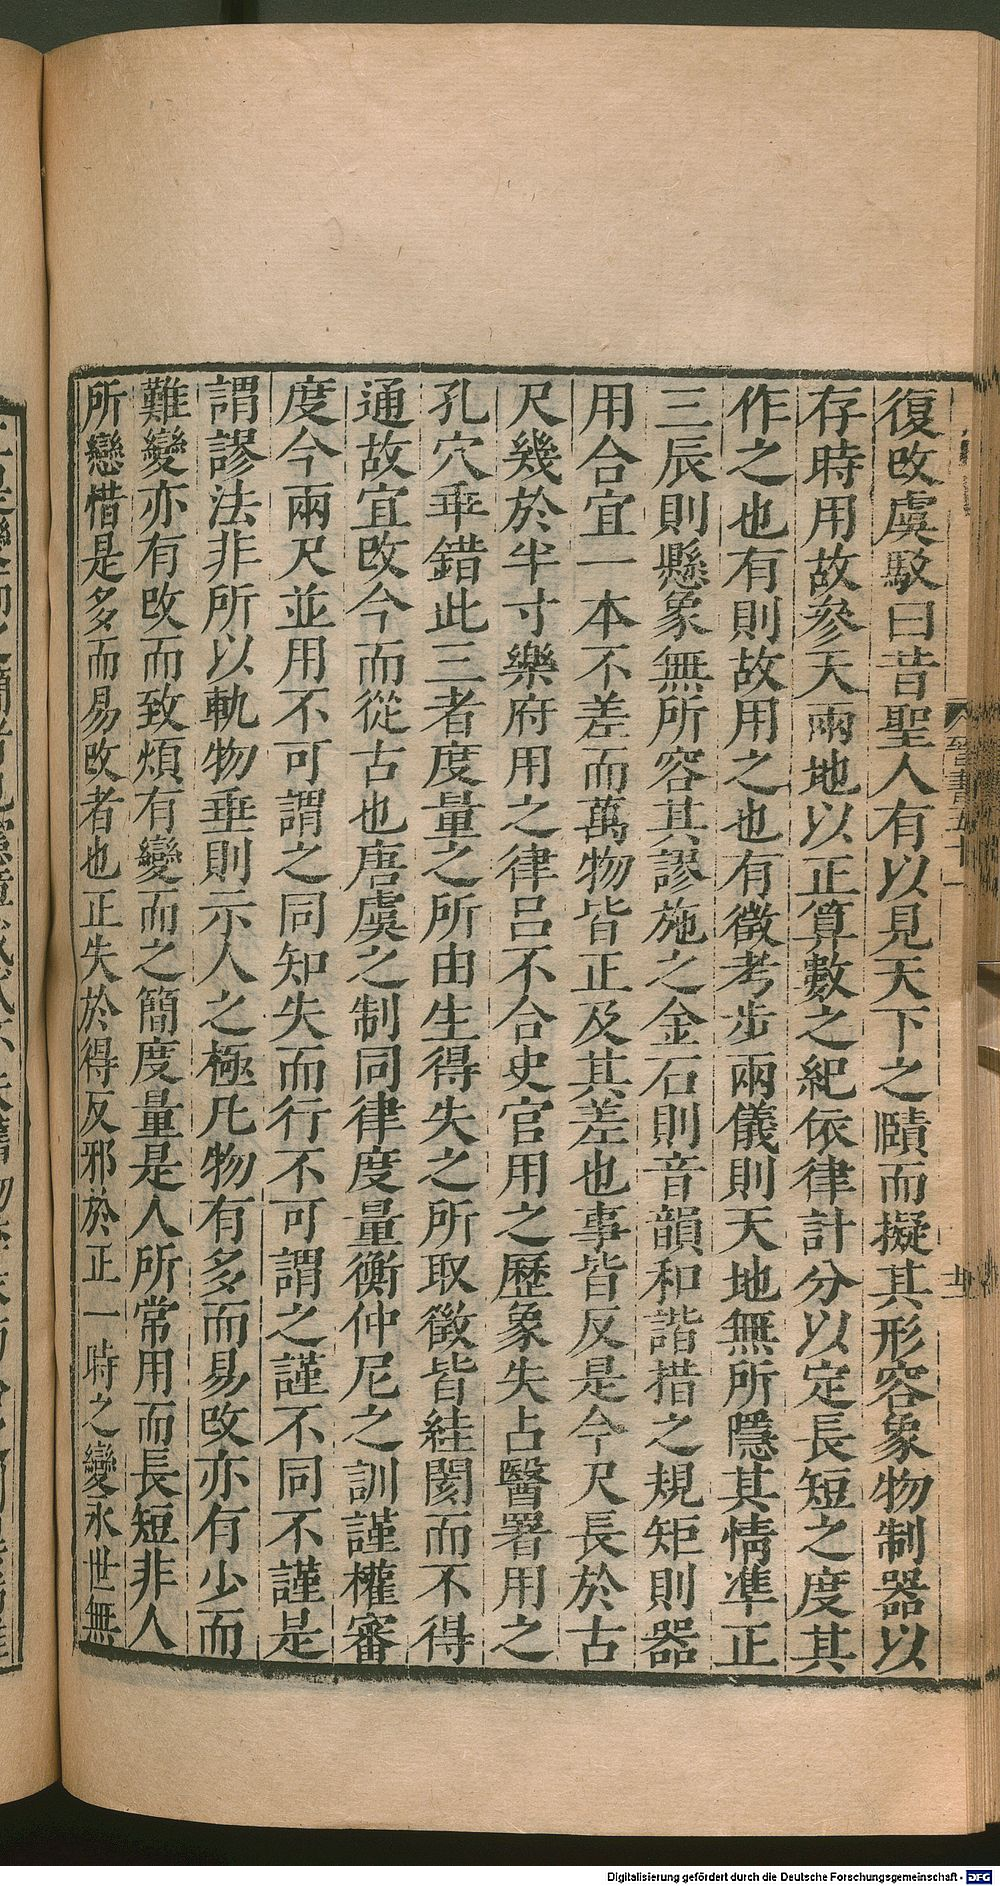 復改虞駁曰昔聖人有以見天下之賾而擬其形容象物制器以
存時用故參天兩地以正算數之紀依律計分以定長短之度其
作之也有則故用之也有徵考步兩儀則天地無所隱其情準正
三辰則懸象無所容其謬施之金石則音韻和諧措之規矩則器
用合宜一本不差而萬物皆正及其差也事皆反是今尺長於古
尺幾於半寸樂府用之律呂不合史官用之歷象失占醫署用之
孔穴乖錯此三者度量之所由生得失之所取徵皆絓閡而不得
通故宜改今而從古也唐虞之制同律度量衡仲尼之訓謹權審
度今兩尺並用不可謂之同知失而行不可謂之謹不同不謹是
謂謬法非所以軌物垂則示人之極凡物有多而易改亦有少而
難變亦有改而致煩有變而之簡度量是人所常用而長短非人
所戀惜是多而易改者也正失於得反邪於正一時之變永世無
晉書五十一
Digitalisierung gefördert durch die Deutsche Forschungsgemeinschaft - DFG